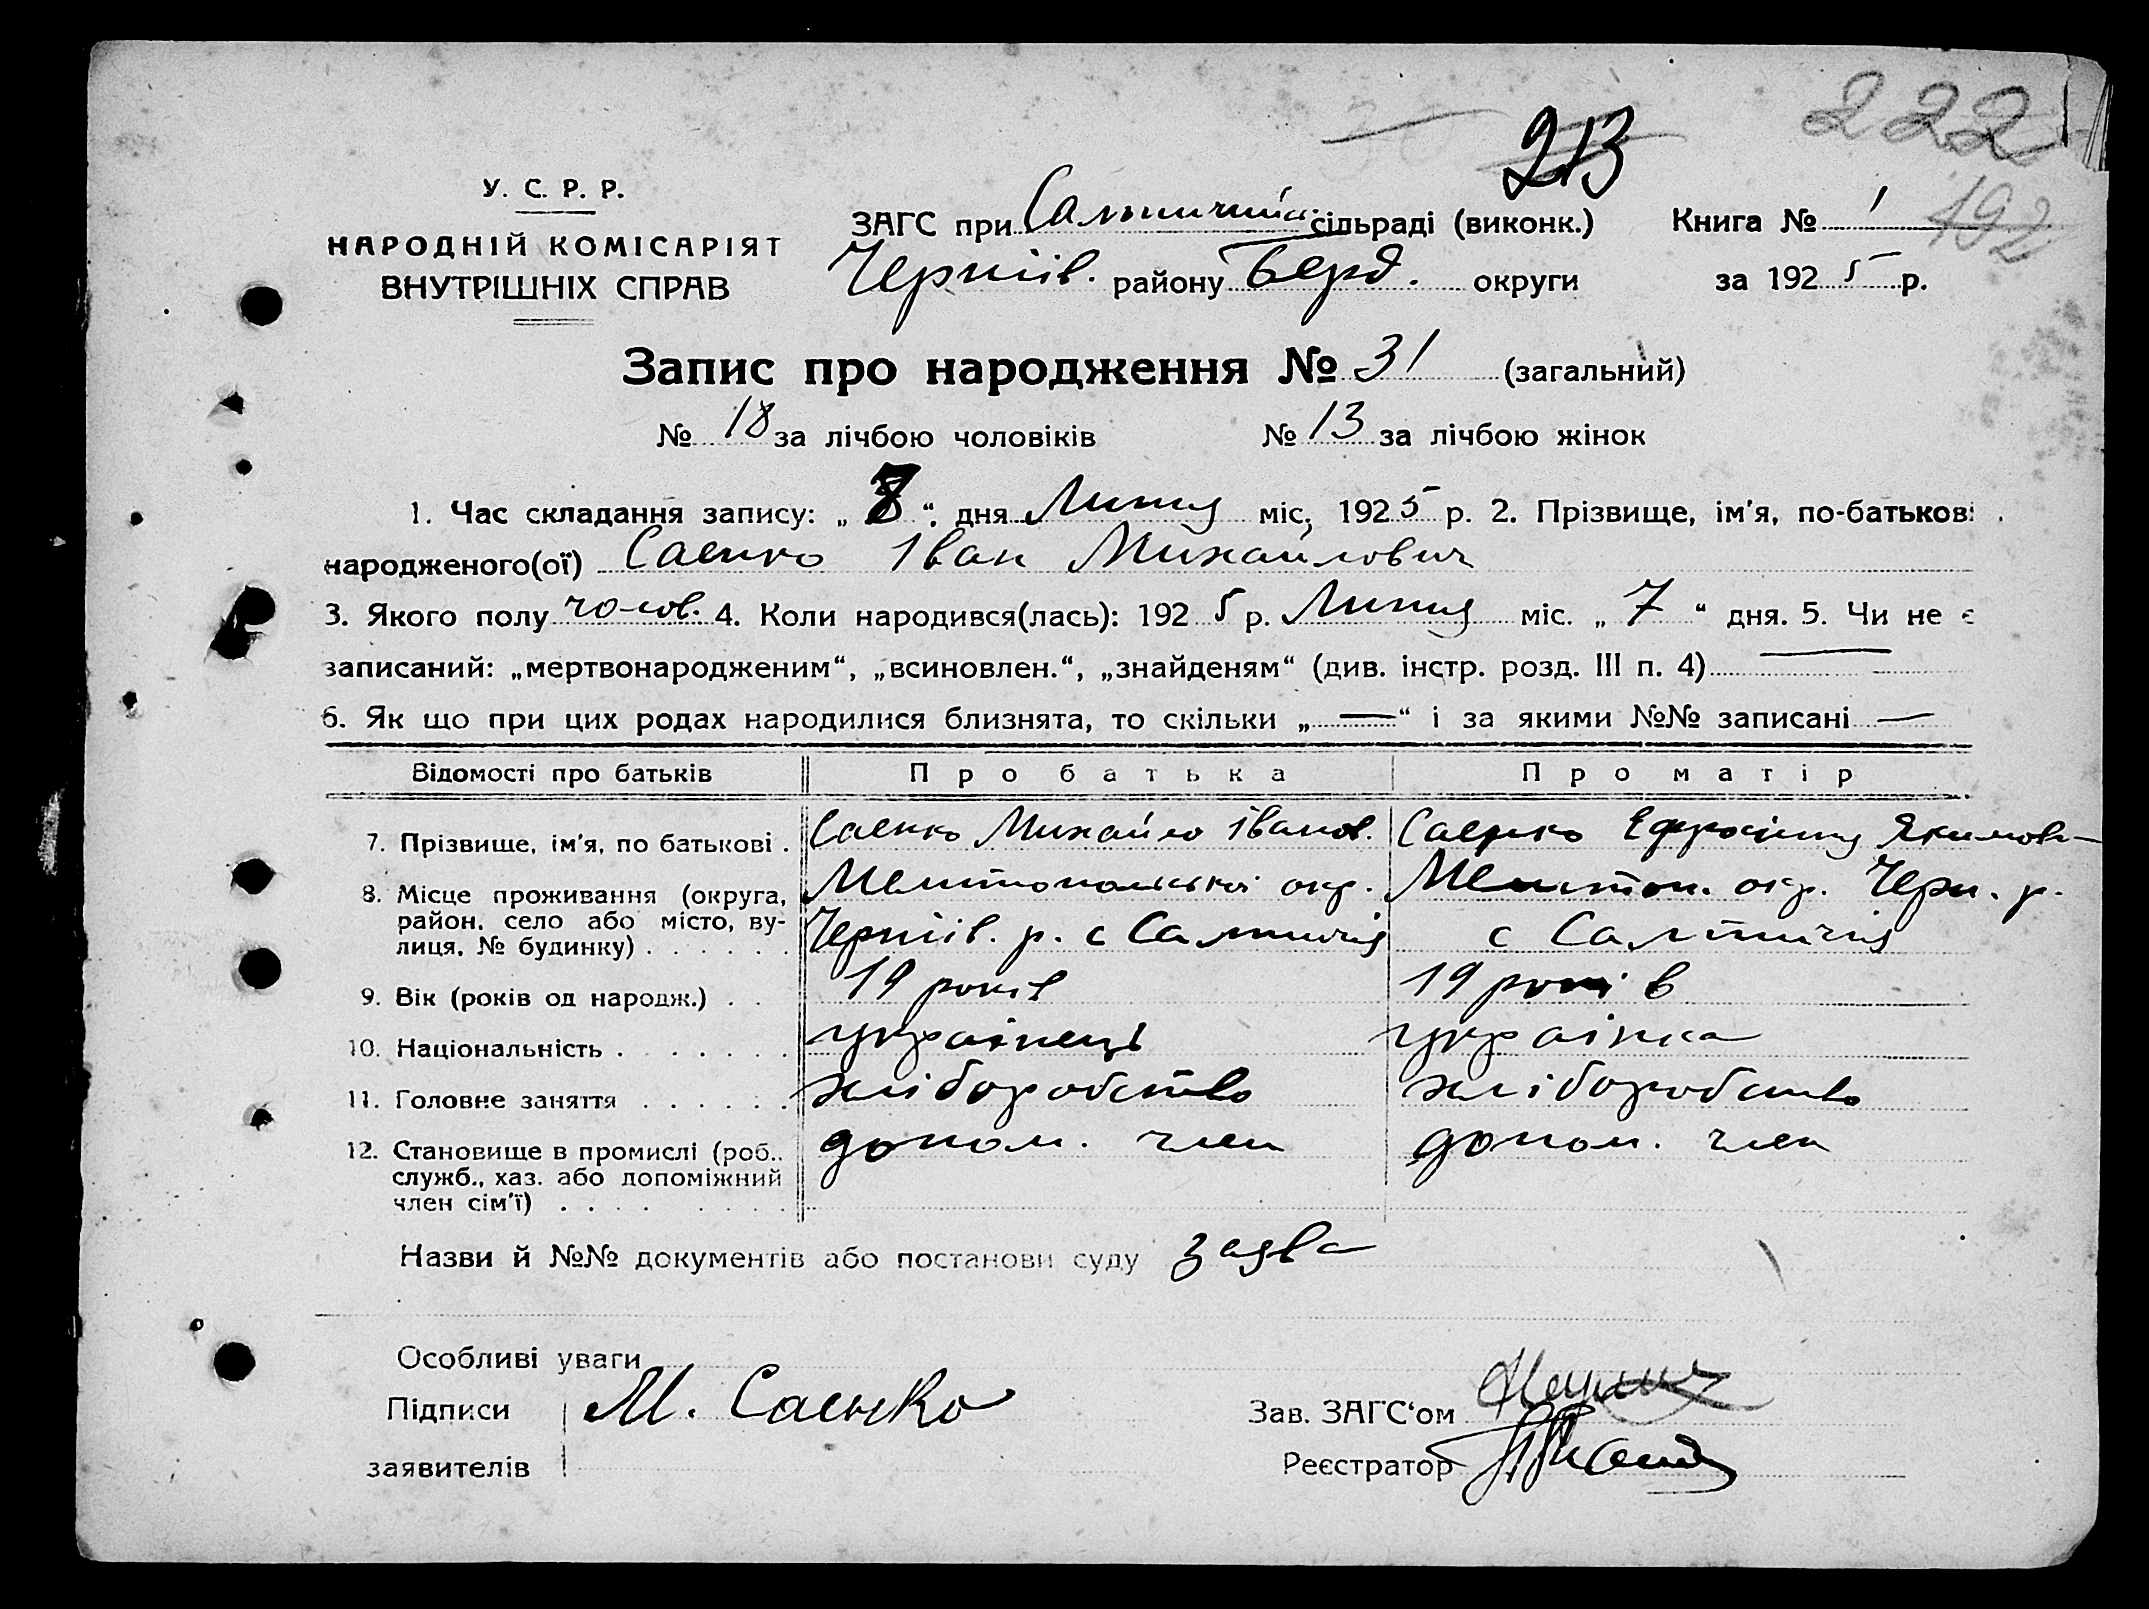 222
213
192
У. С. Р. Р.
НАРОДНІЙ КОМІСАРІЯТ
ВНУТРІШНІХ СПРАВ
ЗАГС при сільраді (виконк.) Книга № 1
Черніів. району Берд. округи за 1925 р.
Запис про народження № 31 (загальний)
№ 18 за лічбою чоловіків № 13 за лічбою жінок
1. Час складання запису: „7“ дня Липня міс, 1925 р. 2. Прізвище, ім'я, по-батькові
народженого(ої) Саенко Іван Михайлович
3. Якого полу чолов. 4. Коли народився(лась): 1925 р. Липня міс. „7“ дня. 5. Чи не є
записаний: „мертвонародженим“, „всиновлен.“, „знайденям“ (див. інстр. розд. III п. 4) —
6. Як що при цих родах народилися близнята, то скільки „—“ і за якими №№ записані —
Відомості про батьків Про батька Про матір
7. Прізвище, ім'я, по батькові . Саенко Михайло Іванов. Саенко Ефросинія Якимовн
8. Місце проживання (округа, район, село або місто, вулиця, № будинку) . . . . . . Мелітопольської окр. Черніів. р. с Салтичія Мелітоп. окр. Черн. р. с Салтичія
9. Вік (років од народж.) . . 19 років 19 років
10. Національність . . . . . . . українець українка
11. Головне заняття . . . . . . хліборобство хліборобство
12. Становище в промислі (роб., служб., хаз. або допоміжний член сім'ї) . . . . . . . . допом. член допом. член
Назви й №№ документів або постанови суду заява
Особливі уваги
Підписи М. Саенко Зав. ЗАГС‘ом
заявителів Реєстратор